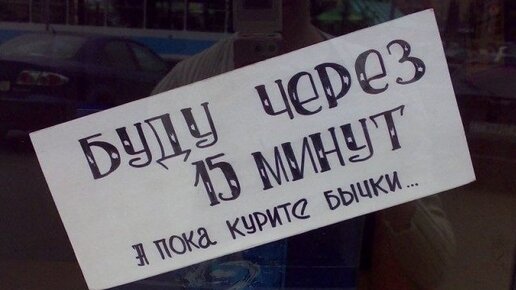 БУДУ ЧЕРЕЗ
15 МИНУТ
А ПОКА КУРИТЕ БЫЧКИ...